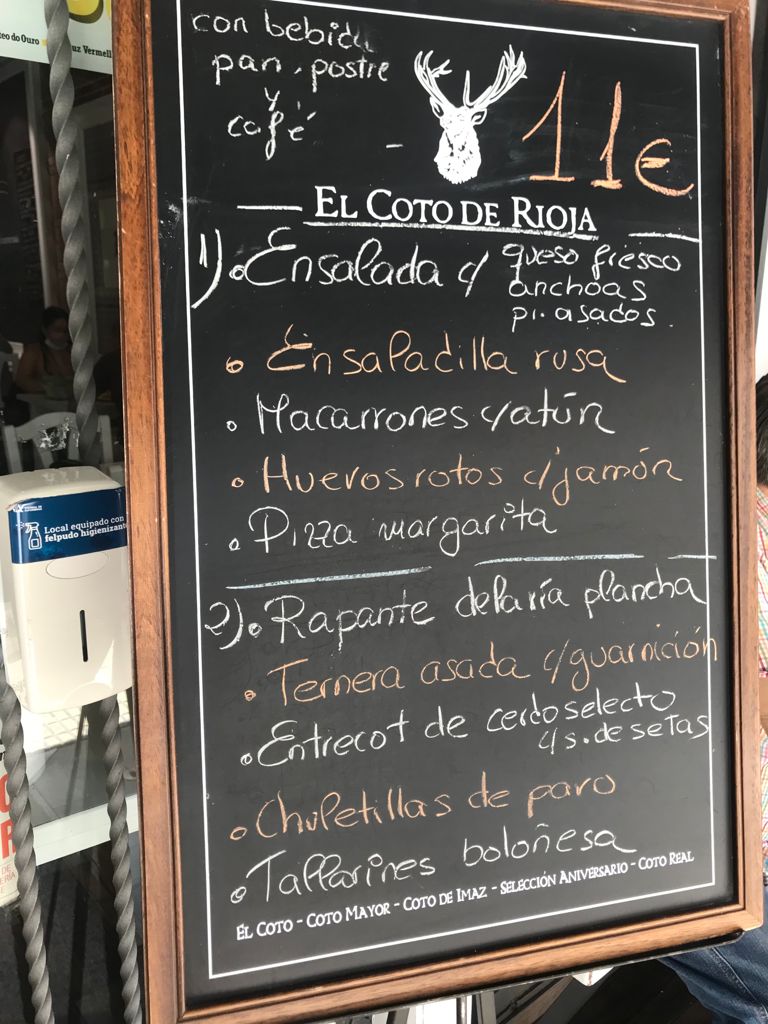 teo do Ouro
uz Vermell
con bebida
pan, postre
y
café - 11€
EL COTO DE RIOJA
1) • Ensalada c/ queso fresco
anchoas
pi. asados.
• Ensaladilla rusa
• Macarrones c/atún
• Huevos rotos c/jamón
• Pizza margarita
2) • Rapante de la ría plancha
• Ternera asada c/guarnición
• Entrecot de cerdo selecto
c/s. de setas
• Chuletillas de pavo
• Tallarines boloñesa
EL COTO - COTO MAYOR - COTO DE IMAZ - SELECCIÓN ANIVERSARIO - COTO REAL
Local equipado con
felpudo higienizante